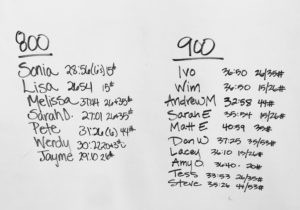 800
Sonia 28:56 (6:) 15#
Lisa 26:54 15#
Melissa 37:04 26+35#
Sarah D. 27:01 26+35#
Pete 31:26 (6) 44#
Wendy 30:22 20+35#
Jayme 29:10 26#
900
Ivo 36:50 26/35#
Wim 36:50 15/26#
Andrew M 32:58 44#
Sarah E 35:54 15/26#
Matt E 40:59 35#
Dan W 37:25 35/53#
Lacey 36:10 15/26#
Amy O. 36:40 20#
Tess 33:53 26/35#
Steve 35:26 44/53#